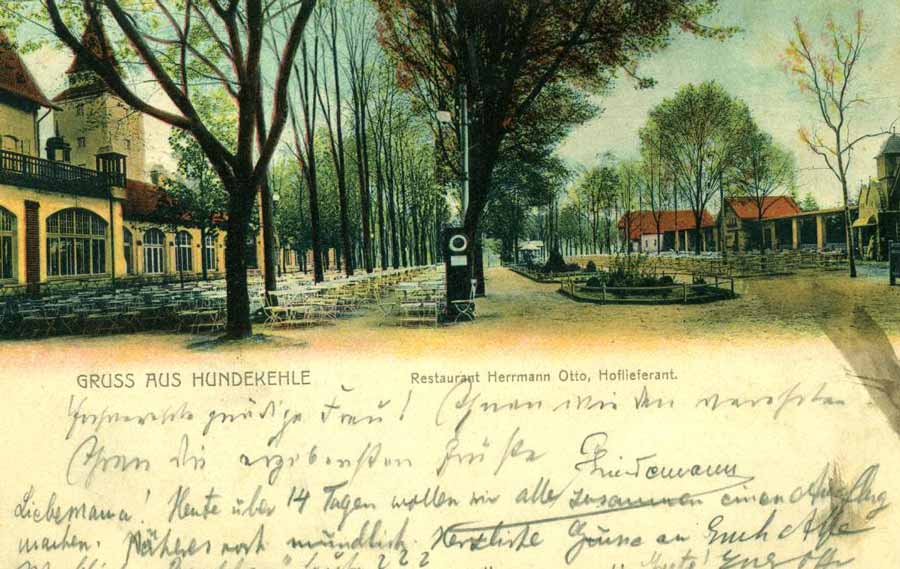 GRUSS AUS HUNDEKEHLE
Restaurant Herrmann Otto, Hoflieferant.
gnädige Frau! Ihnen wie den verehrten
die ergebensten Grüße Friedemann
Liebe Mama! Heute über 14 Tagen wollen wir alle zusammen einen Ausflug
machen. Näheres noch mündlich. Herzliche Grüsse an Euch Alle
???